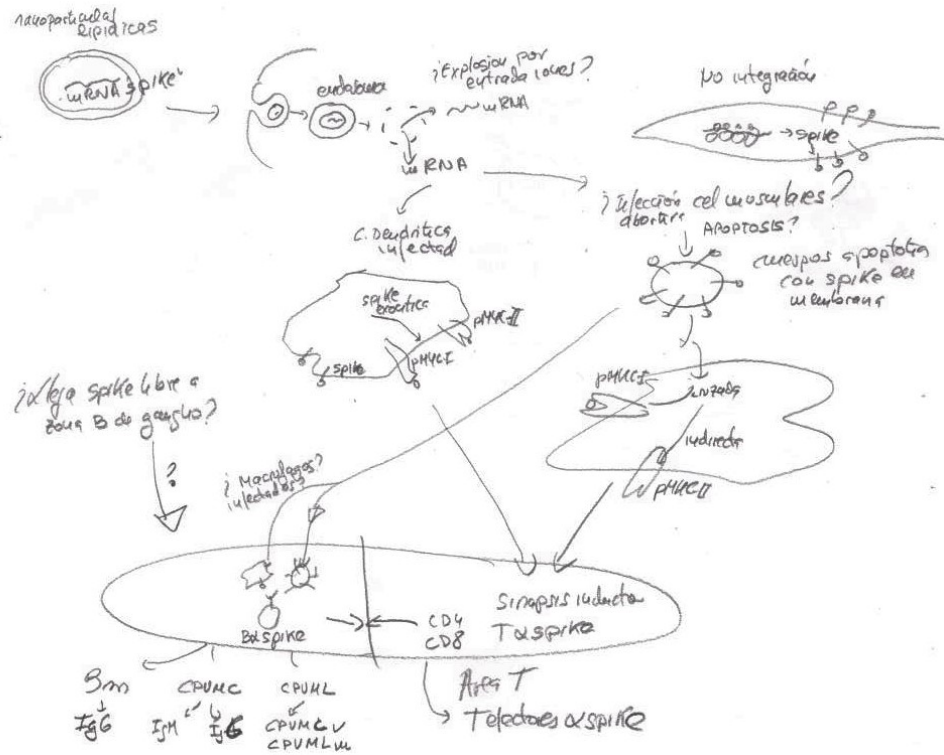 nanopartículas
lipídicas
mRNA spike
endosoma
¿Explosion por
entrada iones?
mRNA
mRNA
No integración
→ spike
¿Infección cel musculares?
abortiva
APOPTOSIS?
cuerpos apoptotia
con spike en
membrana
C. Dendrítica
infectad
spike
exocitica
pMHC-II
pMHCI
spike
pMHCI
cruzada
indirecta
pMHCII
¿Llega spike libre a
zona B de ganglio?
?
¿Macrofagos?
infectados?
Bαspike
CD4
CD8
Sinapsis inductora
Tαspike
Area T
Tefectores αspike
Bm
IgG
CPVMC
IgM
IgG
CPVML
CPVMLv
CPVMLm